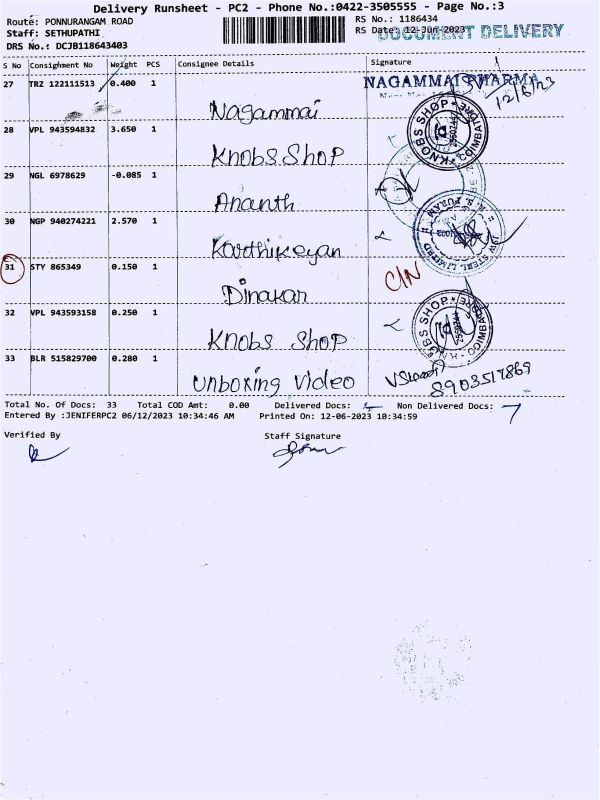 Delivery Runsheet - PC2 - Phone No.:0422-3505555 - Page No.:3
Route: PONNURANGAM ROAD
RS No.: 1186434
Staff: SETHUPATHI
RS Date: 12-Jun-2023
DOCUMENT DELIVERY
DRS No.: DCJB118643403
S No Consignment No Weight PCS Consignee Details Signature
27 TRZ 122111513 0.400 1 Nagammai
NAGAMMAI PHARMA
12/6/23
28 VPL 943594832 3.650 1 Knobs Shop
KNOBS SHOP COIMBATORE
29 NGL 6978629 -0.085 1 Ananth
30 NGP 940274221 2.570 1 Karthikeyan
JSW STEEL LIMITED R. S. PURAM
31 STY 865349 0.150 1 Dinakar
C/N
32 VPL 943593158 0.250 1 Knobs Shop
KNOBS SHOP COIMBATORE
33 BLR 515829700 0.280 1 Unboxing Video
8903517869
Total No. Of Docs: 33 Total COD Amt: 0.00 Delivered Docs: Non Delivered Docs: 7
Entered By :JENIFERPC2 06/12/2023 10:34:46 AM Printed On: 12-06-2023 10:34:59
Verified By Staff Signature